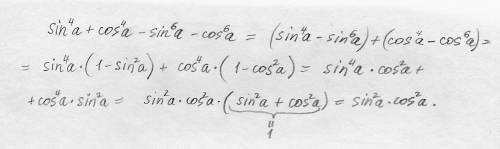 sin⁴a + cos⁴a - sin⁶a - cos⁶a = (sin⁴a - sin⁶a) + (cos⁴a - cos⁶a) =
= sin⁴a · (1 - sin²a) + cos⁴a · (1 - cos²a) = sin⁴a · cos²a +
+ cos⁴a · sin²a = sin²a · cos²a · (sin²a + cos²a) = sin²a · cos²a .
"
1